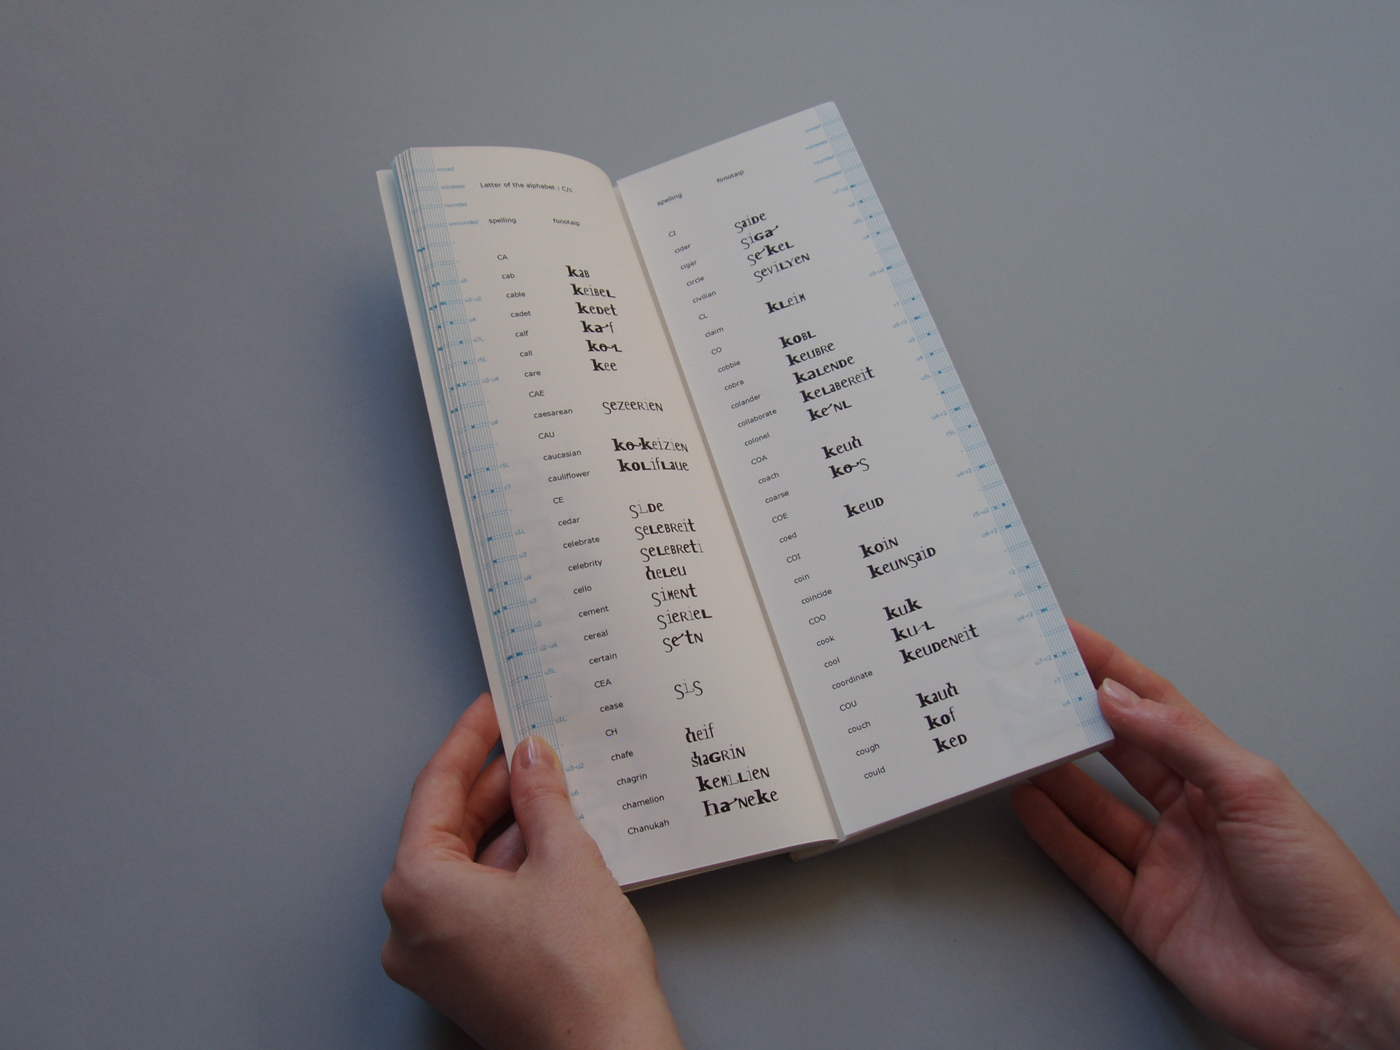 Letter of the alphabet : C/c
spelling fonotaip
CA
cab kaB
cable keiBeL
cadet keDet
calf ka-f
call ko-L
care kee
CAE
caesarean SeZeeRieN
CAU
caucasian ko-keiZieN
cauliflower koLifLaue
CE
cedar SiDe
celebrate SeLeBReit
celebrity SeLeBReti
cello heLeu
cement SiMeNt
cereal SieRieL
certain Se-tN
CEA
cease SiS
CH
chafe heif
chagrin haGRiN
chamelion keMiLieN
Chanukah ha-Neke
spelling fonotaip
CI
cider SaiDe
cigar SiGa-
circle Se-keL
civilian SeviLyeN
CL
claim kLeiM
CO
cobble koBL
cobra keuBRe
colander kaLeNDe
collaborate keLaBeReit
colonel ke-NL
COA
coach keuh
coarse ko-S
COE
coed keuD
COI
coin koiN
coincide keuNSaiD
COO
cook kuk
cool ku-L
coordinate keuDeNeit
COU
couch kauh
cough kof
could keD